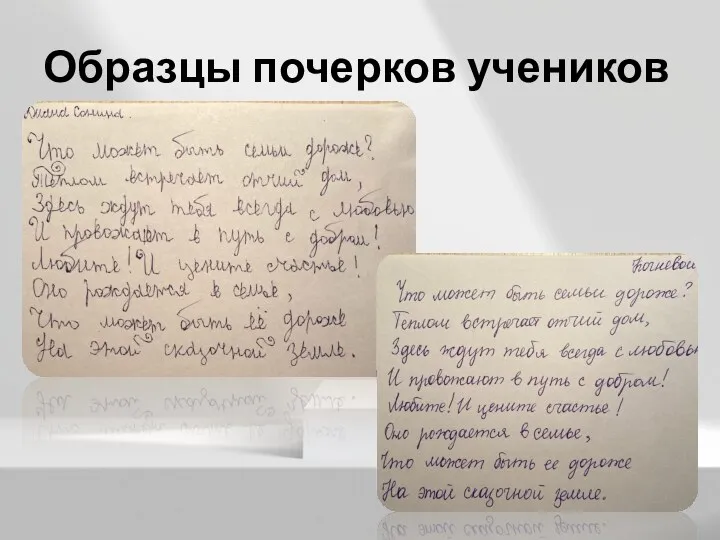 Образцы почерков учеников
Диана Сонина.
Что может быть семьи дороже?
Теплом встречает отчий дом,
Здесь ждут тебя всегда с любовью
И провожают в путь с добром!
Любите! И цените счастье!
Оно рождается в семье,
Что может быть её дороже
На этой сказочной земле.
Что может быть семьи дороже?
Теплом встречает отчий дом,
Здесь ждут тебя всегда с любовью
И провожают в путь с добром!
Любите! И цените счастье!
Оно рождается в семье,
Что может быть ее дороже
На этой сказочной земле.